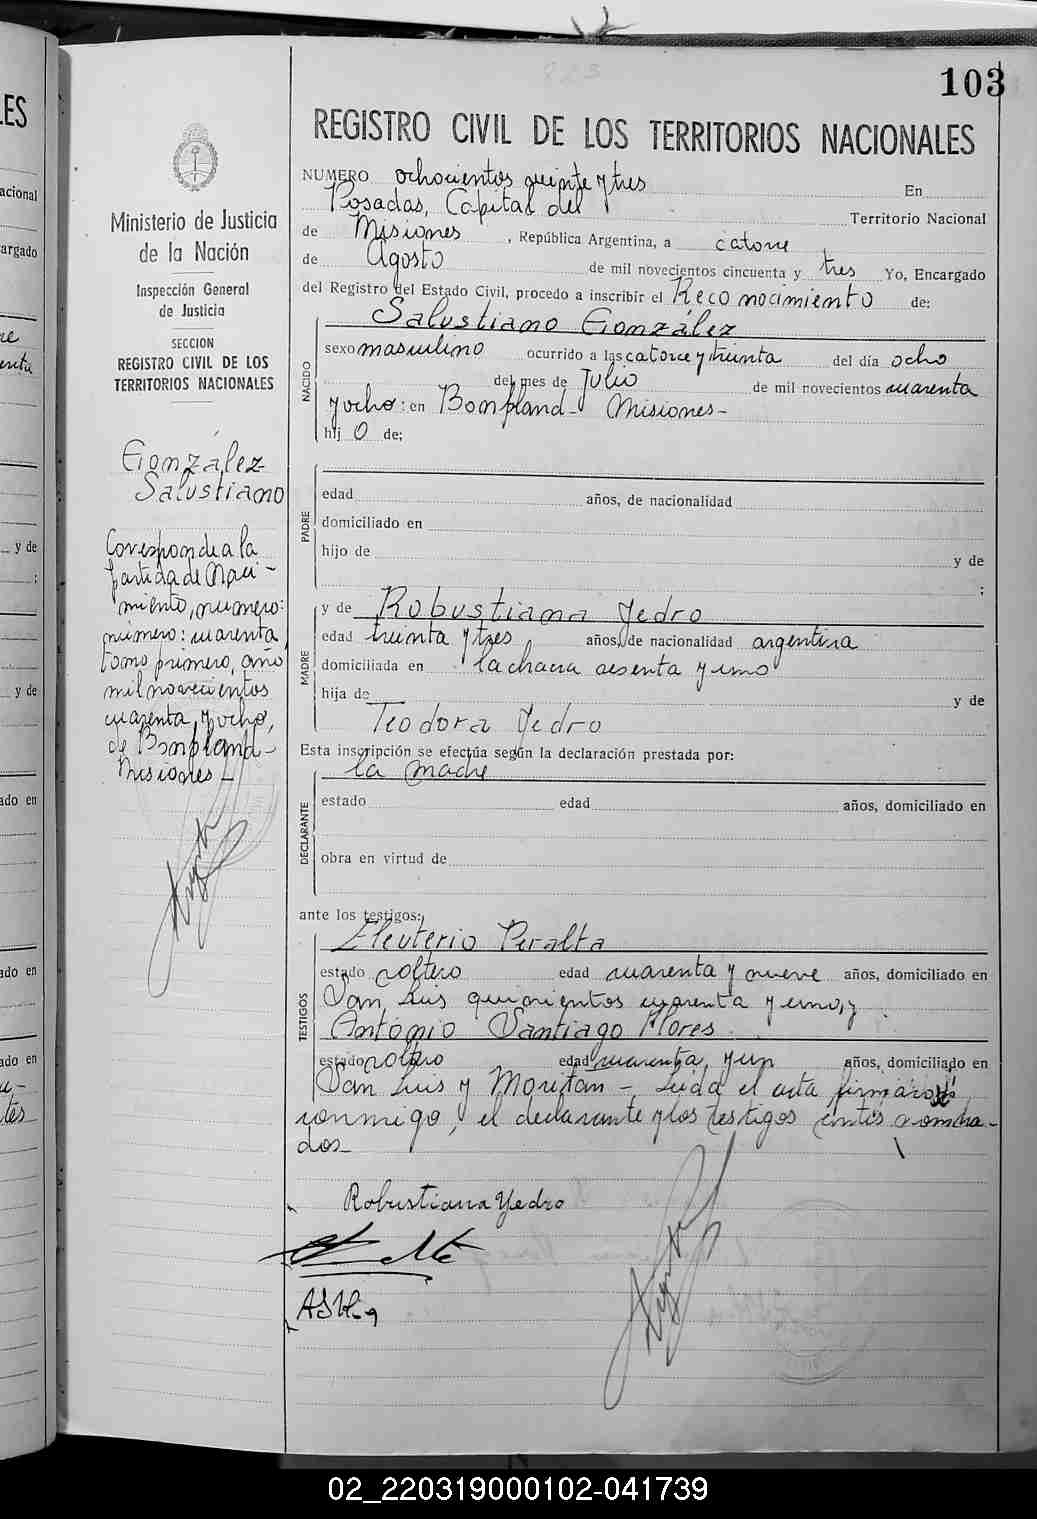 103
REGISTRO CIVIL DE LOS TERRITORIOS NACIONALES
NUMERO ochocientos veinte y tres En
Posadas, Capital del Territorio Nacional
de Misiones, República Argentina, a catorce
de Agosto de mil novecientos cincuenta y tres Yo, Encargado
del Registro del Estado Civil, procedo a inscribir el Reconocimiento de:
Salustiano González
NACIDO
sexo masculino ocurrido a las catorce y treinta del día ocho
del mes de Julio de mil novecientos cuarenta
y ocho: en Bonpland - Misiones -
hij o de;
PADRE
edad años, de nacionalidad
domiciliado en
hijo de y de
;
MADRE
y de Robustiana Yedro
edad treinta y tres años, de nacionalidad argentina
domiciliada en la chacra sesenta y uno
hija de y de
Teodora Yedro
Esta inscripción se efectúa según la declaración prestada por:
la madre
DECLARANTE
estado edad años, domiciliado en
obra en virtud de
ante los testigos:
TESTIGOS
Eleuterio Peralta
estado soltero edad cuarenta y nueve años, domiciliado en
San Luis quinientos cuarenta y uno, y
Antonio Santiago Flores
estado soltero edad cuarenta y un años, domiciliado en
San Luis y Moritan - Leída el acta firmaron
conmigo, el declarante y los testigos nombra-
dos -
Robustiana Yedro
Ministerio de Justicia
de la Nación
Inspección General
de Justicia
SECCION
REGISTRO CIVIL DE LOS
TERRITORIOS NACIONALES
González
Salustiano
Corresponde a la
partida de Naci-
miento, numero:
número: cuarenta
tomo primero, año
mil novecientos
cuarenta y ocho,
de Bonpland -
Misiones -
LES
acional
argado
y de
;
y de
ado en
ado en
ado en
02_220319000102-041739